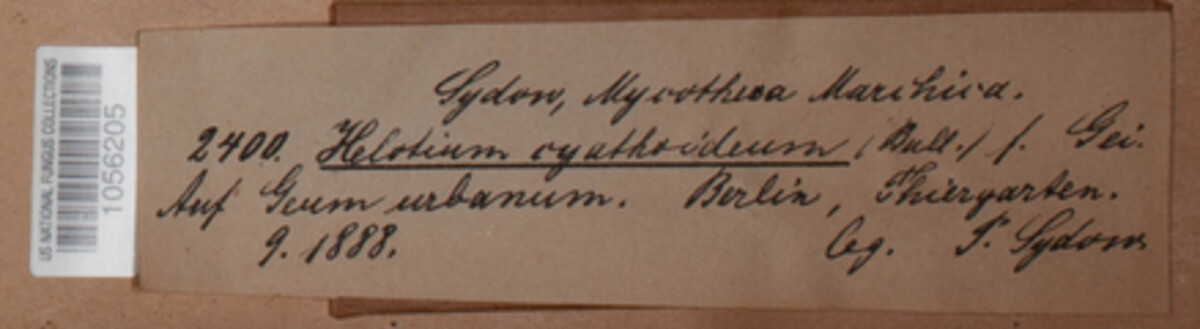 US NATIONAL FUNGUS COLLECTIONS
1056205
Sydow, Mycotheca Marchica.
2400. Helotium cyathoideum (Bull.) f. Gei.
Auf Geum urbanum. Berlin, Thiergarten.
9. 1888. leg. P. Sydow.